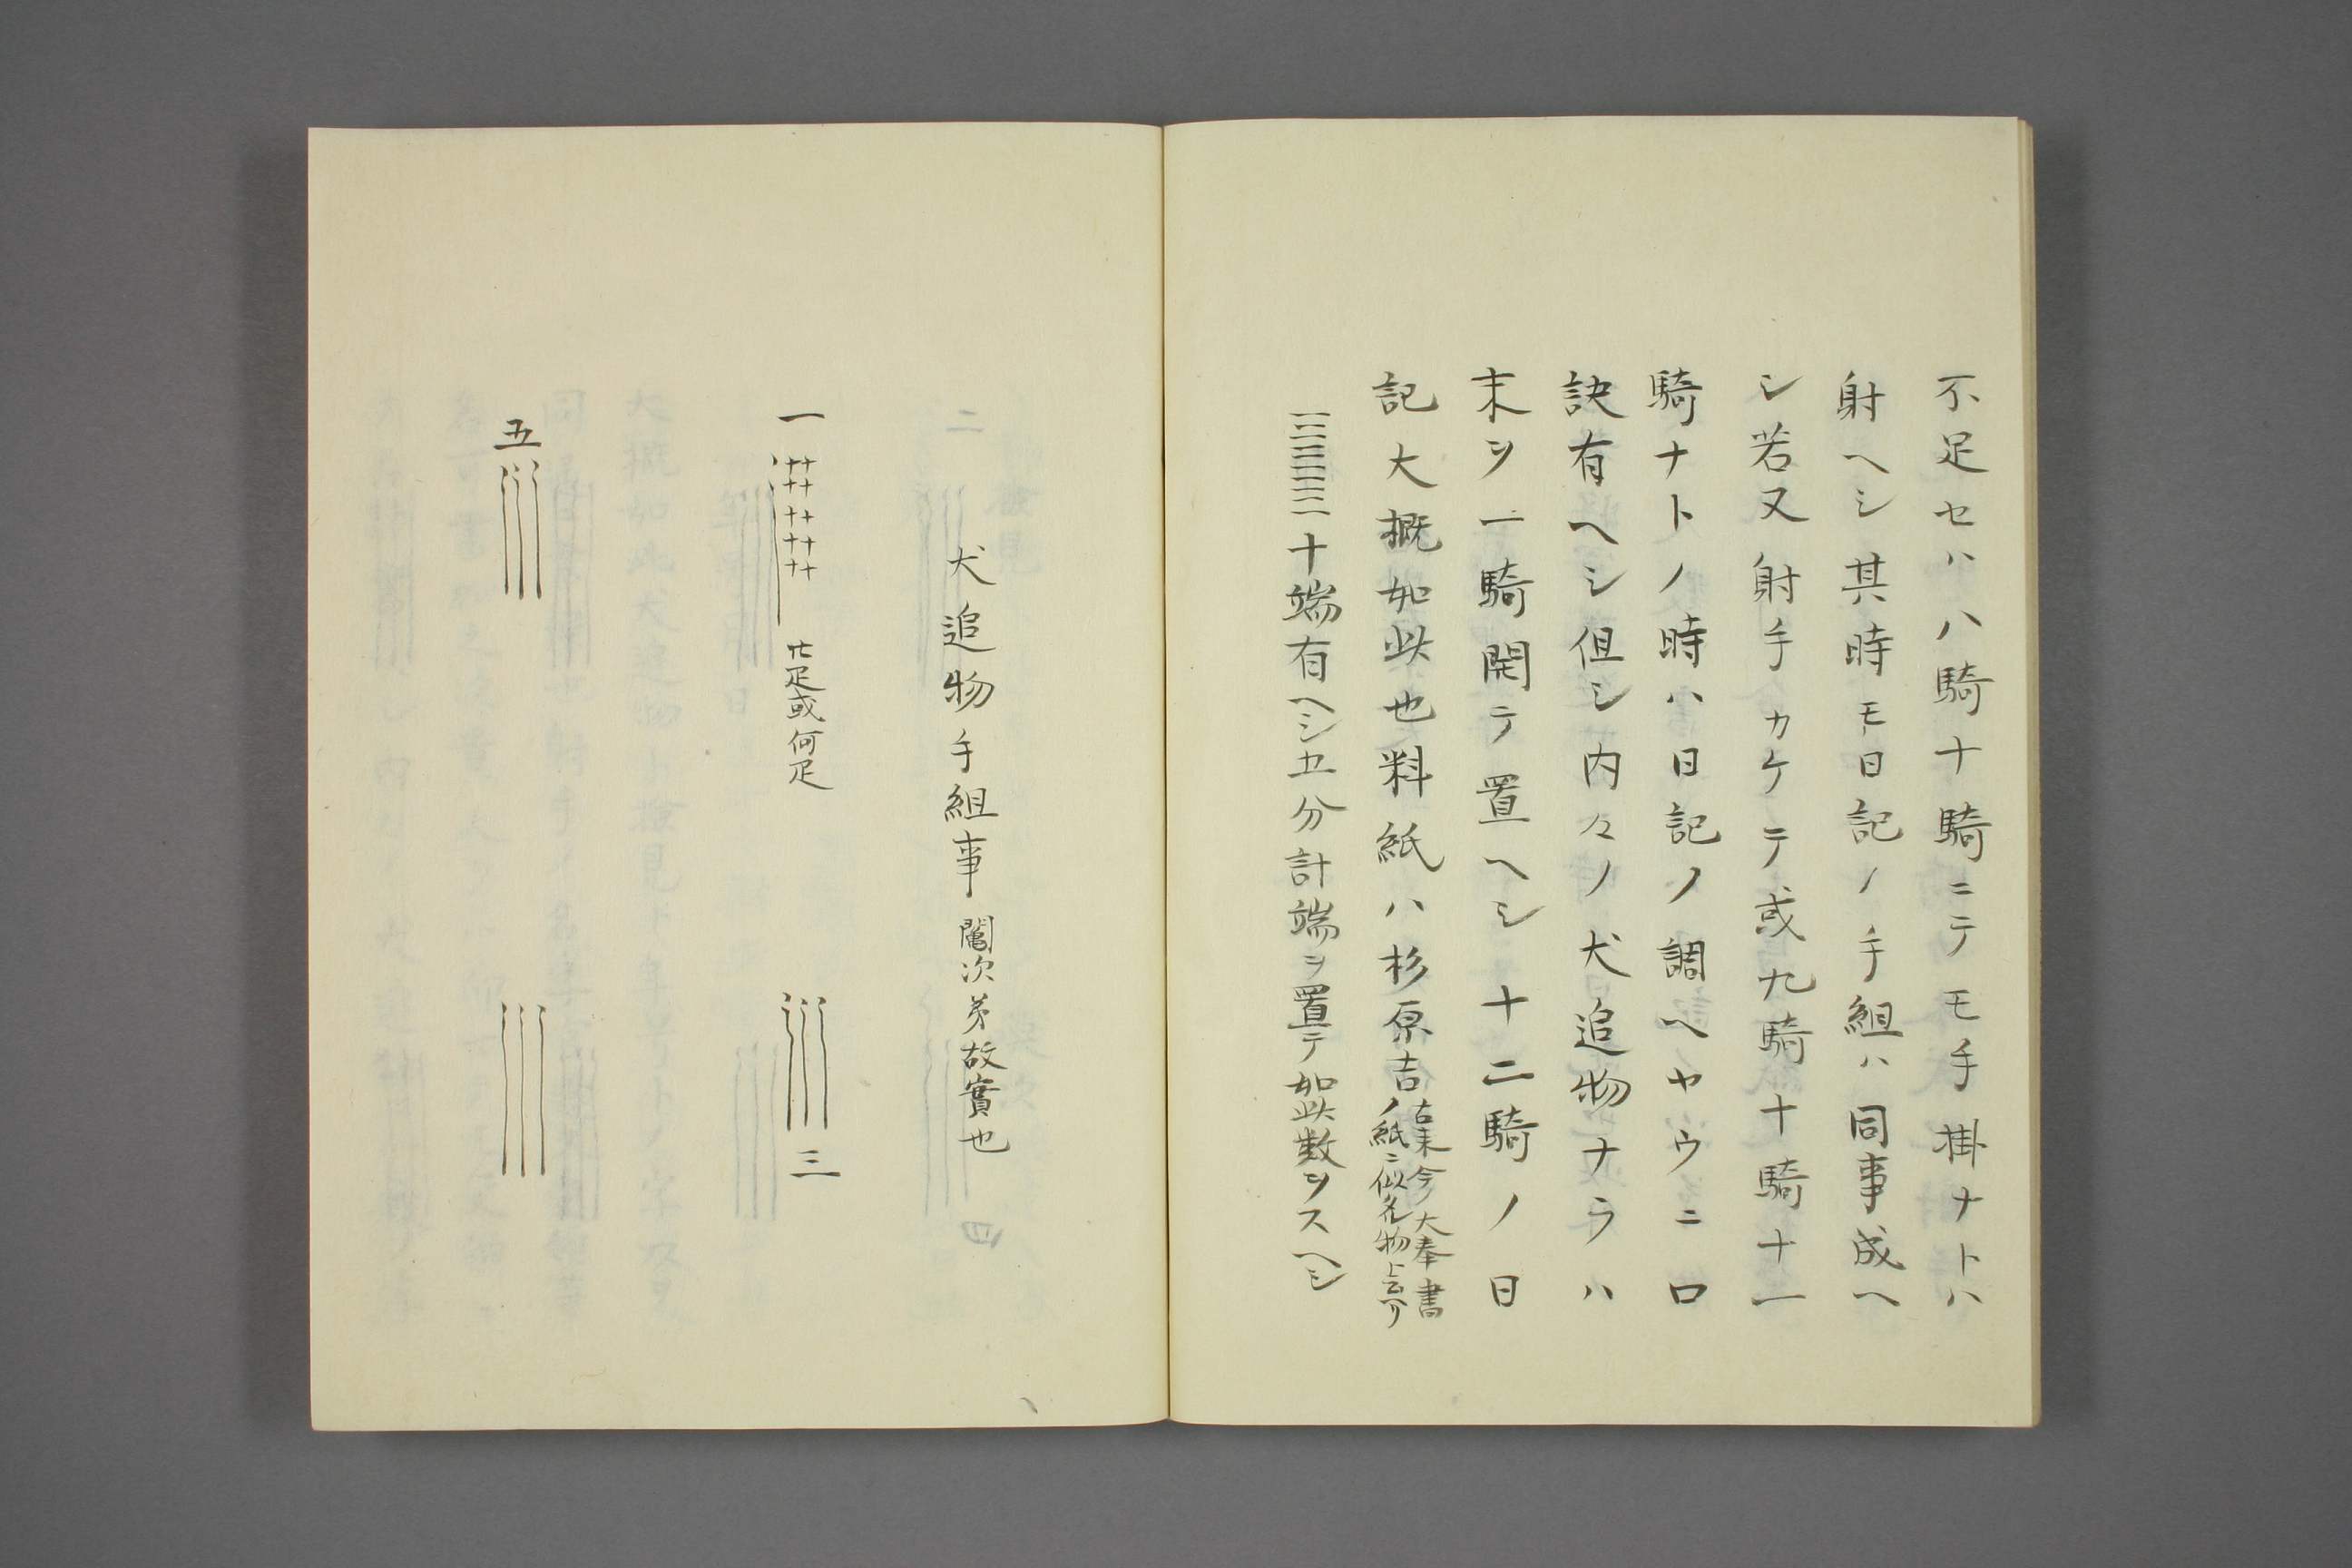 不足セハ八騎十騎ニテモ手掛ナトハ
射ヘシ其時モ日記ノ手組ハ同事成ヘ
シ若又射手カケテ或九騎十騎十一
騎ナトノ時ハ日記ノ調ヘヤウニロ
訣有ヘシ但シ内々ノ犬追物ナラハ
末ヲ一騎開テ置ヘシ十二騎ノ日
記大概如此也料紙ハ杉原吉
今大奉書
ノ紙ニ似名物
十端有ヘシ五分計端ヲ置テ如此数ヲスヘシ
犬追物手組事
鬮次第故實也
一
疋或何疋
三
五